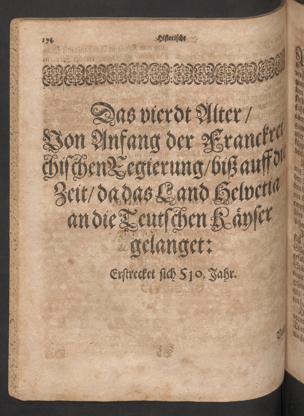 194 Historische
Das vierdt Alter /
Von Anfang der Franckrei
chischen Regierung / biß auff die
Zeit / da das Land Helvetia
an die Teutschen Käyser
gelanget:
Erstrecket sich 510. Jahr.